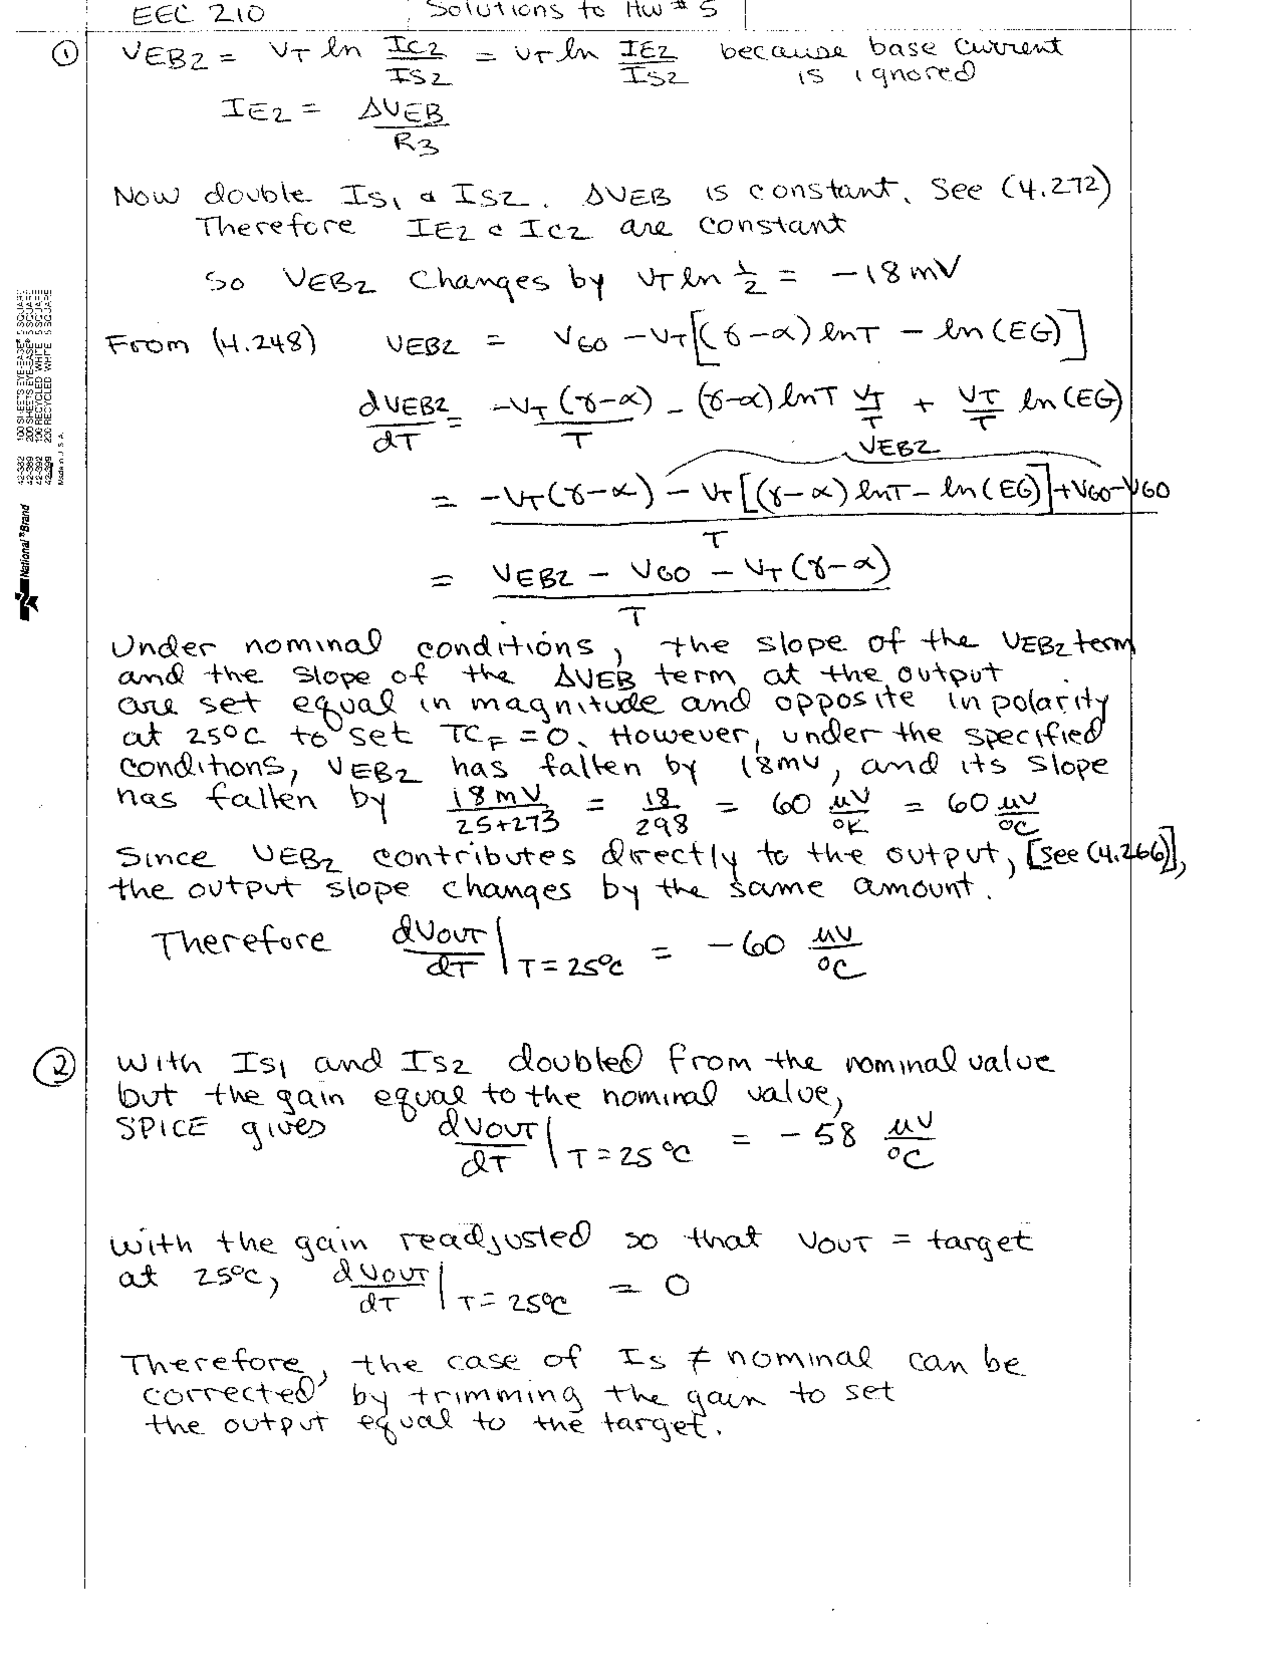 EEC 210 Solutions to HW # 5
① VEB2 = VT ln IC2/IS2 = VT ln IE2/IS2 because base current
is ignored
IE2 = ΔVEB/R3
Now double IS1 & IS2. ΔVEB is constant. See (4.272)
Therefore IE2 & IC2 are constant
So VEB2 changes by VT ln 1/2 = -18mV
From (4.248) VEB2 = VG0 - VT[(γ-α) lnT - ln(EG)]
dVEB2/dT = -VT(γ-α)/T - (γ-α) lnT VT/T + VT/T ln(EG)
VEB2
= (-VT(γ-α) - VT[(γ-α) lnT - ln(EG)] + VG0 - VG0)/T
= (VEB2 - VG0 - VT(γ-α))/T
Under nominal conditions, the slope of the VEB2 term
and the slope of the ΔVEB term at the output
are set equal in magnitude and opposite in polarity
at 25°C to set TCF = 0. However, under the specified
conditions, VEB2 has fallen by 18mV, and its slope
has fallen by 18mV/(25+273) = 18/298 = 60 μV/°K = 60 μV/°C
Since VEB2 contributes directly to the output, [see (4.266)],
the output slope changes by the same amount.
Therefore dVOUT/dT | T=25°C = -60 μV/°C
② With IS1 and IS2 doubled from the nominal value
but the gain equal to the nominal value,
SPICE gives dVOUT/dT | T=25°C = -58 μV/°C
With the gain readjusted so that VOUT = target
at 25°C, dVOUT/dT | T=25°C = 0
Therefore, the case of IS ≠ nominal can be
corrected by trimming the gain to set
the output equal to the target.
National ® Brand
Made in U.S.A.